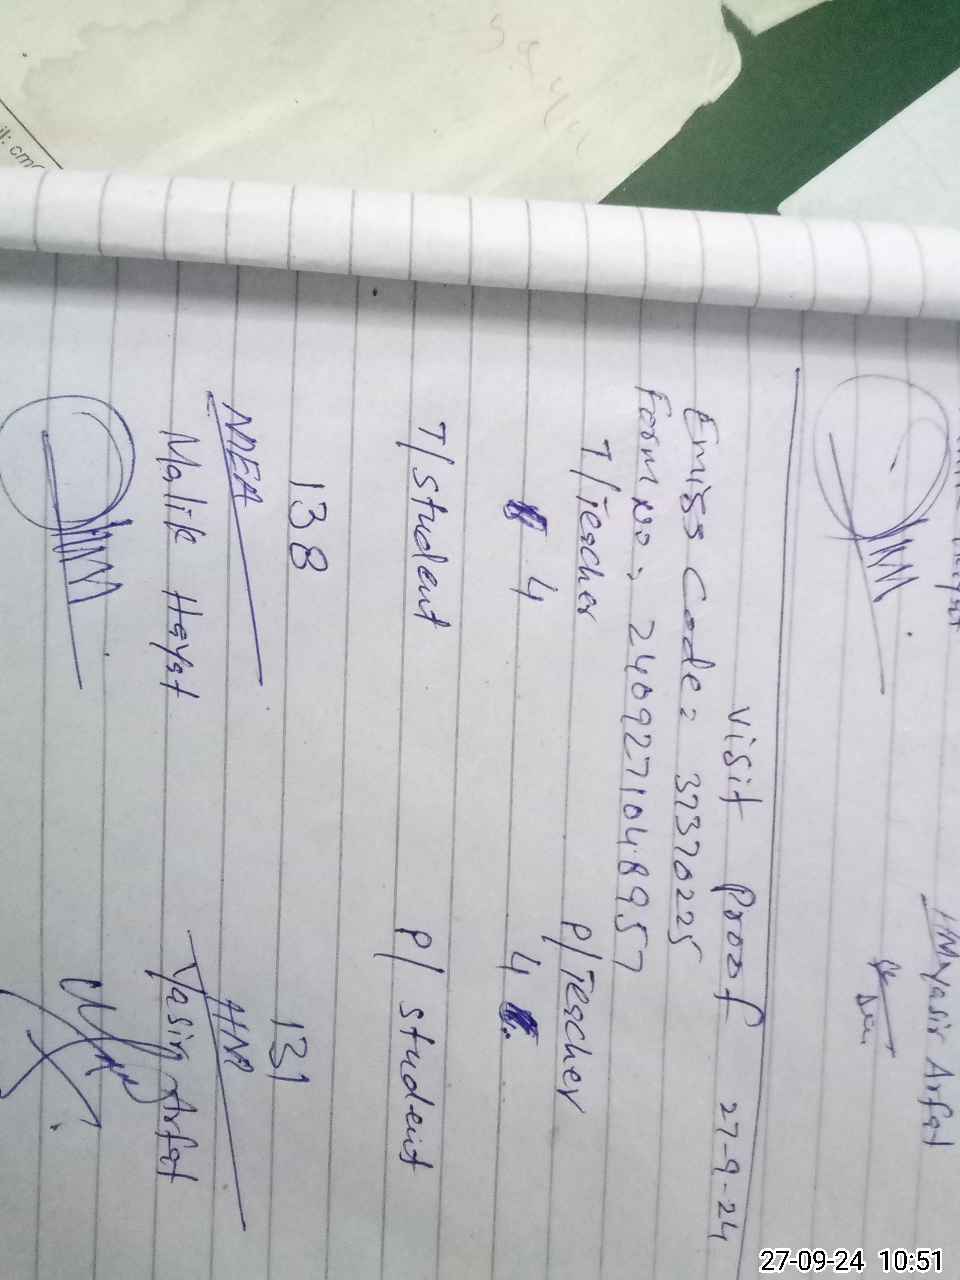 HM yasir Arfat
visit proof 27-9-24
Emiss Code: 37370225
Form No: 2409271048957
T/Teacher P/Teacher
4 4
T/student P/ student
138 131
MEA HM
Malik Hayat Yasir Arfat
27-09-24 10:51